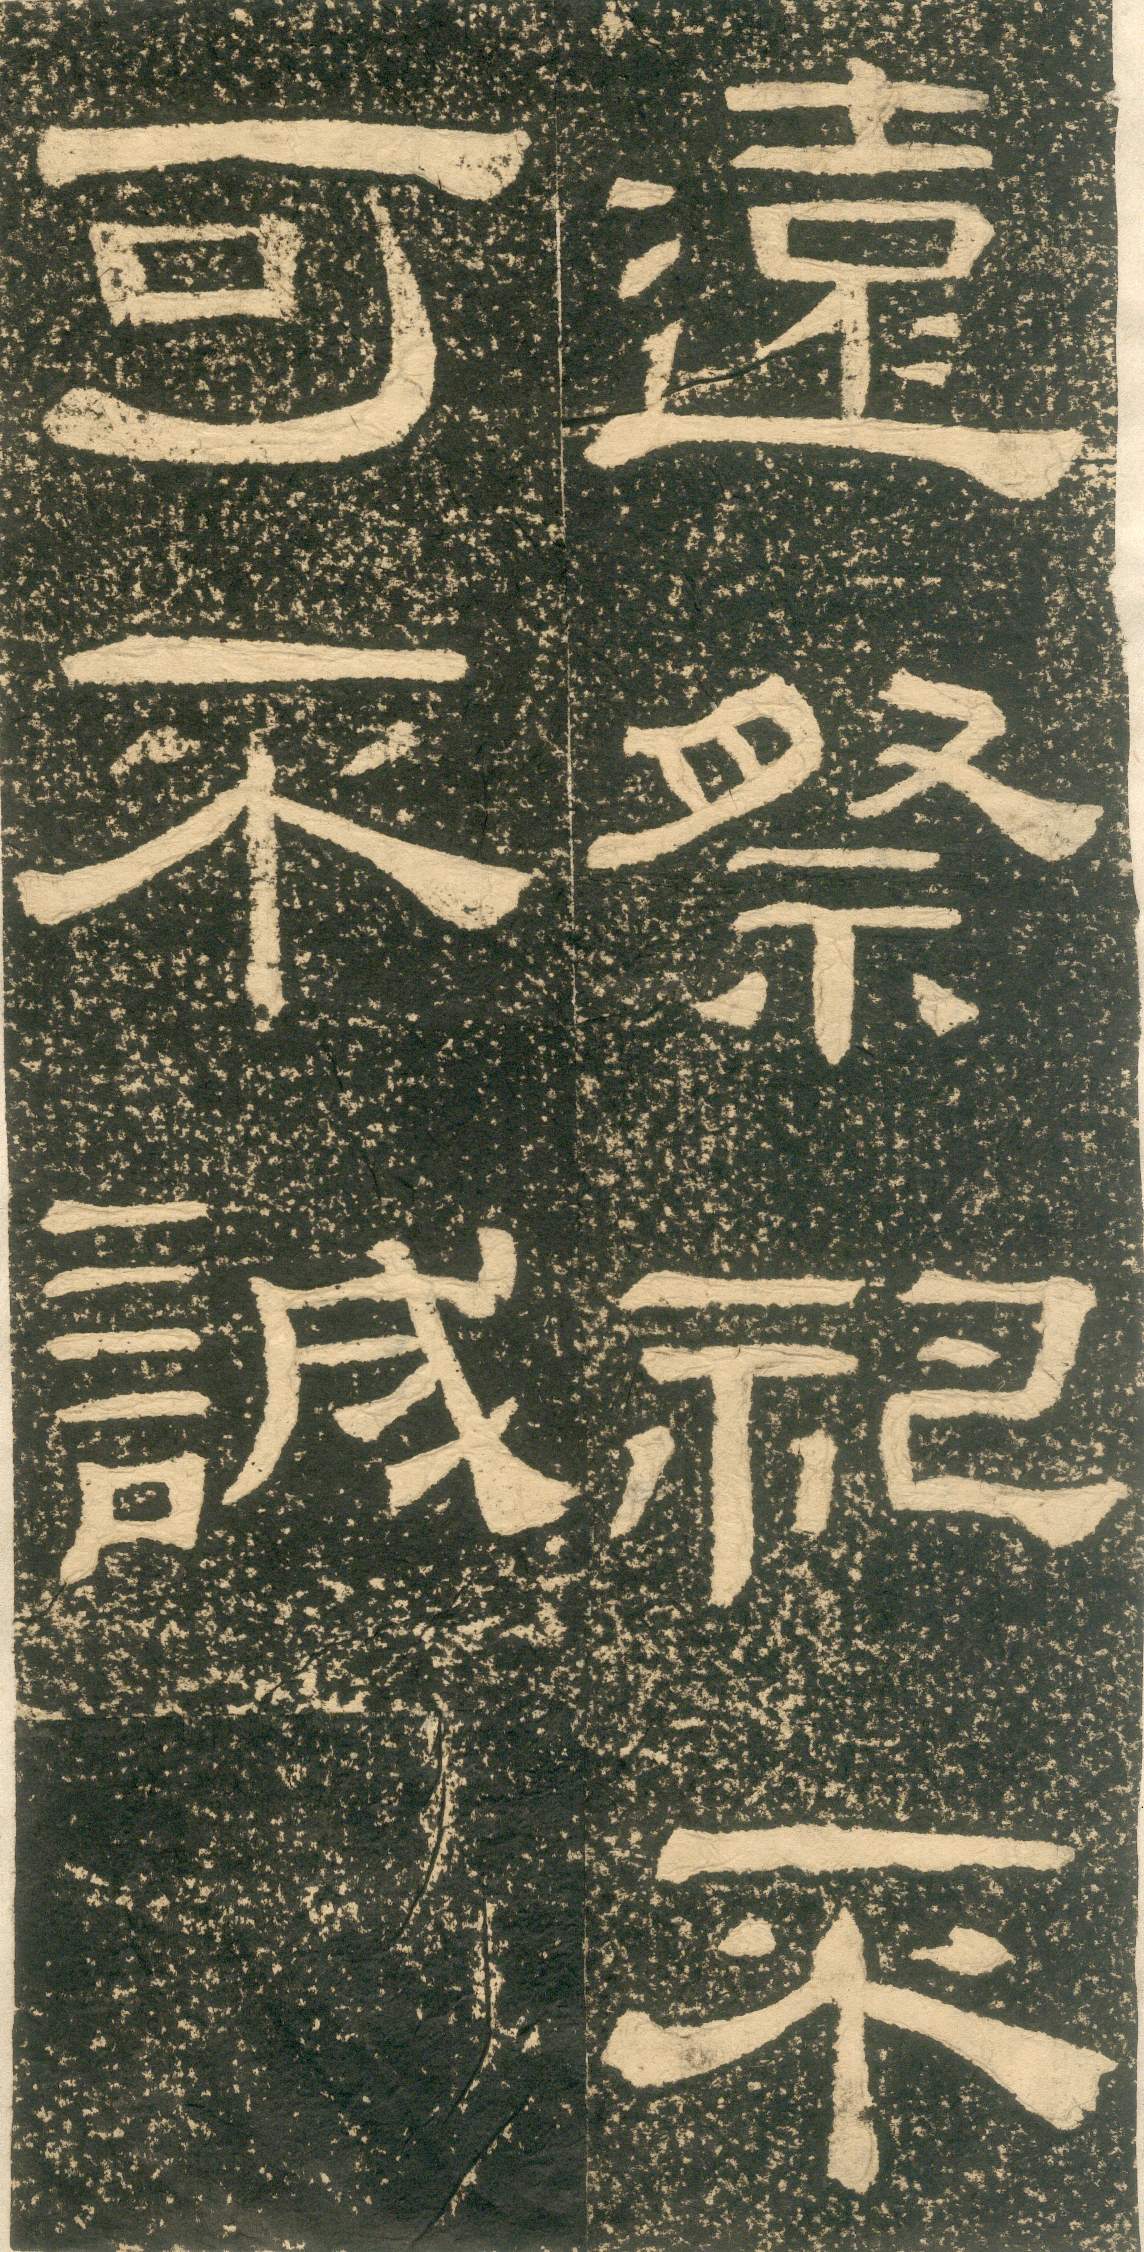 遠祭祀不
可不誠